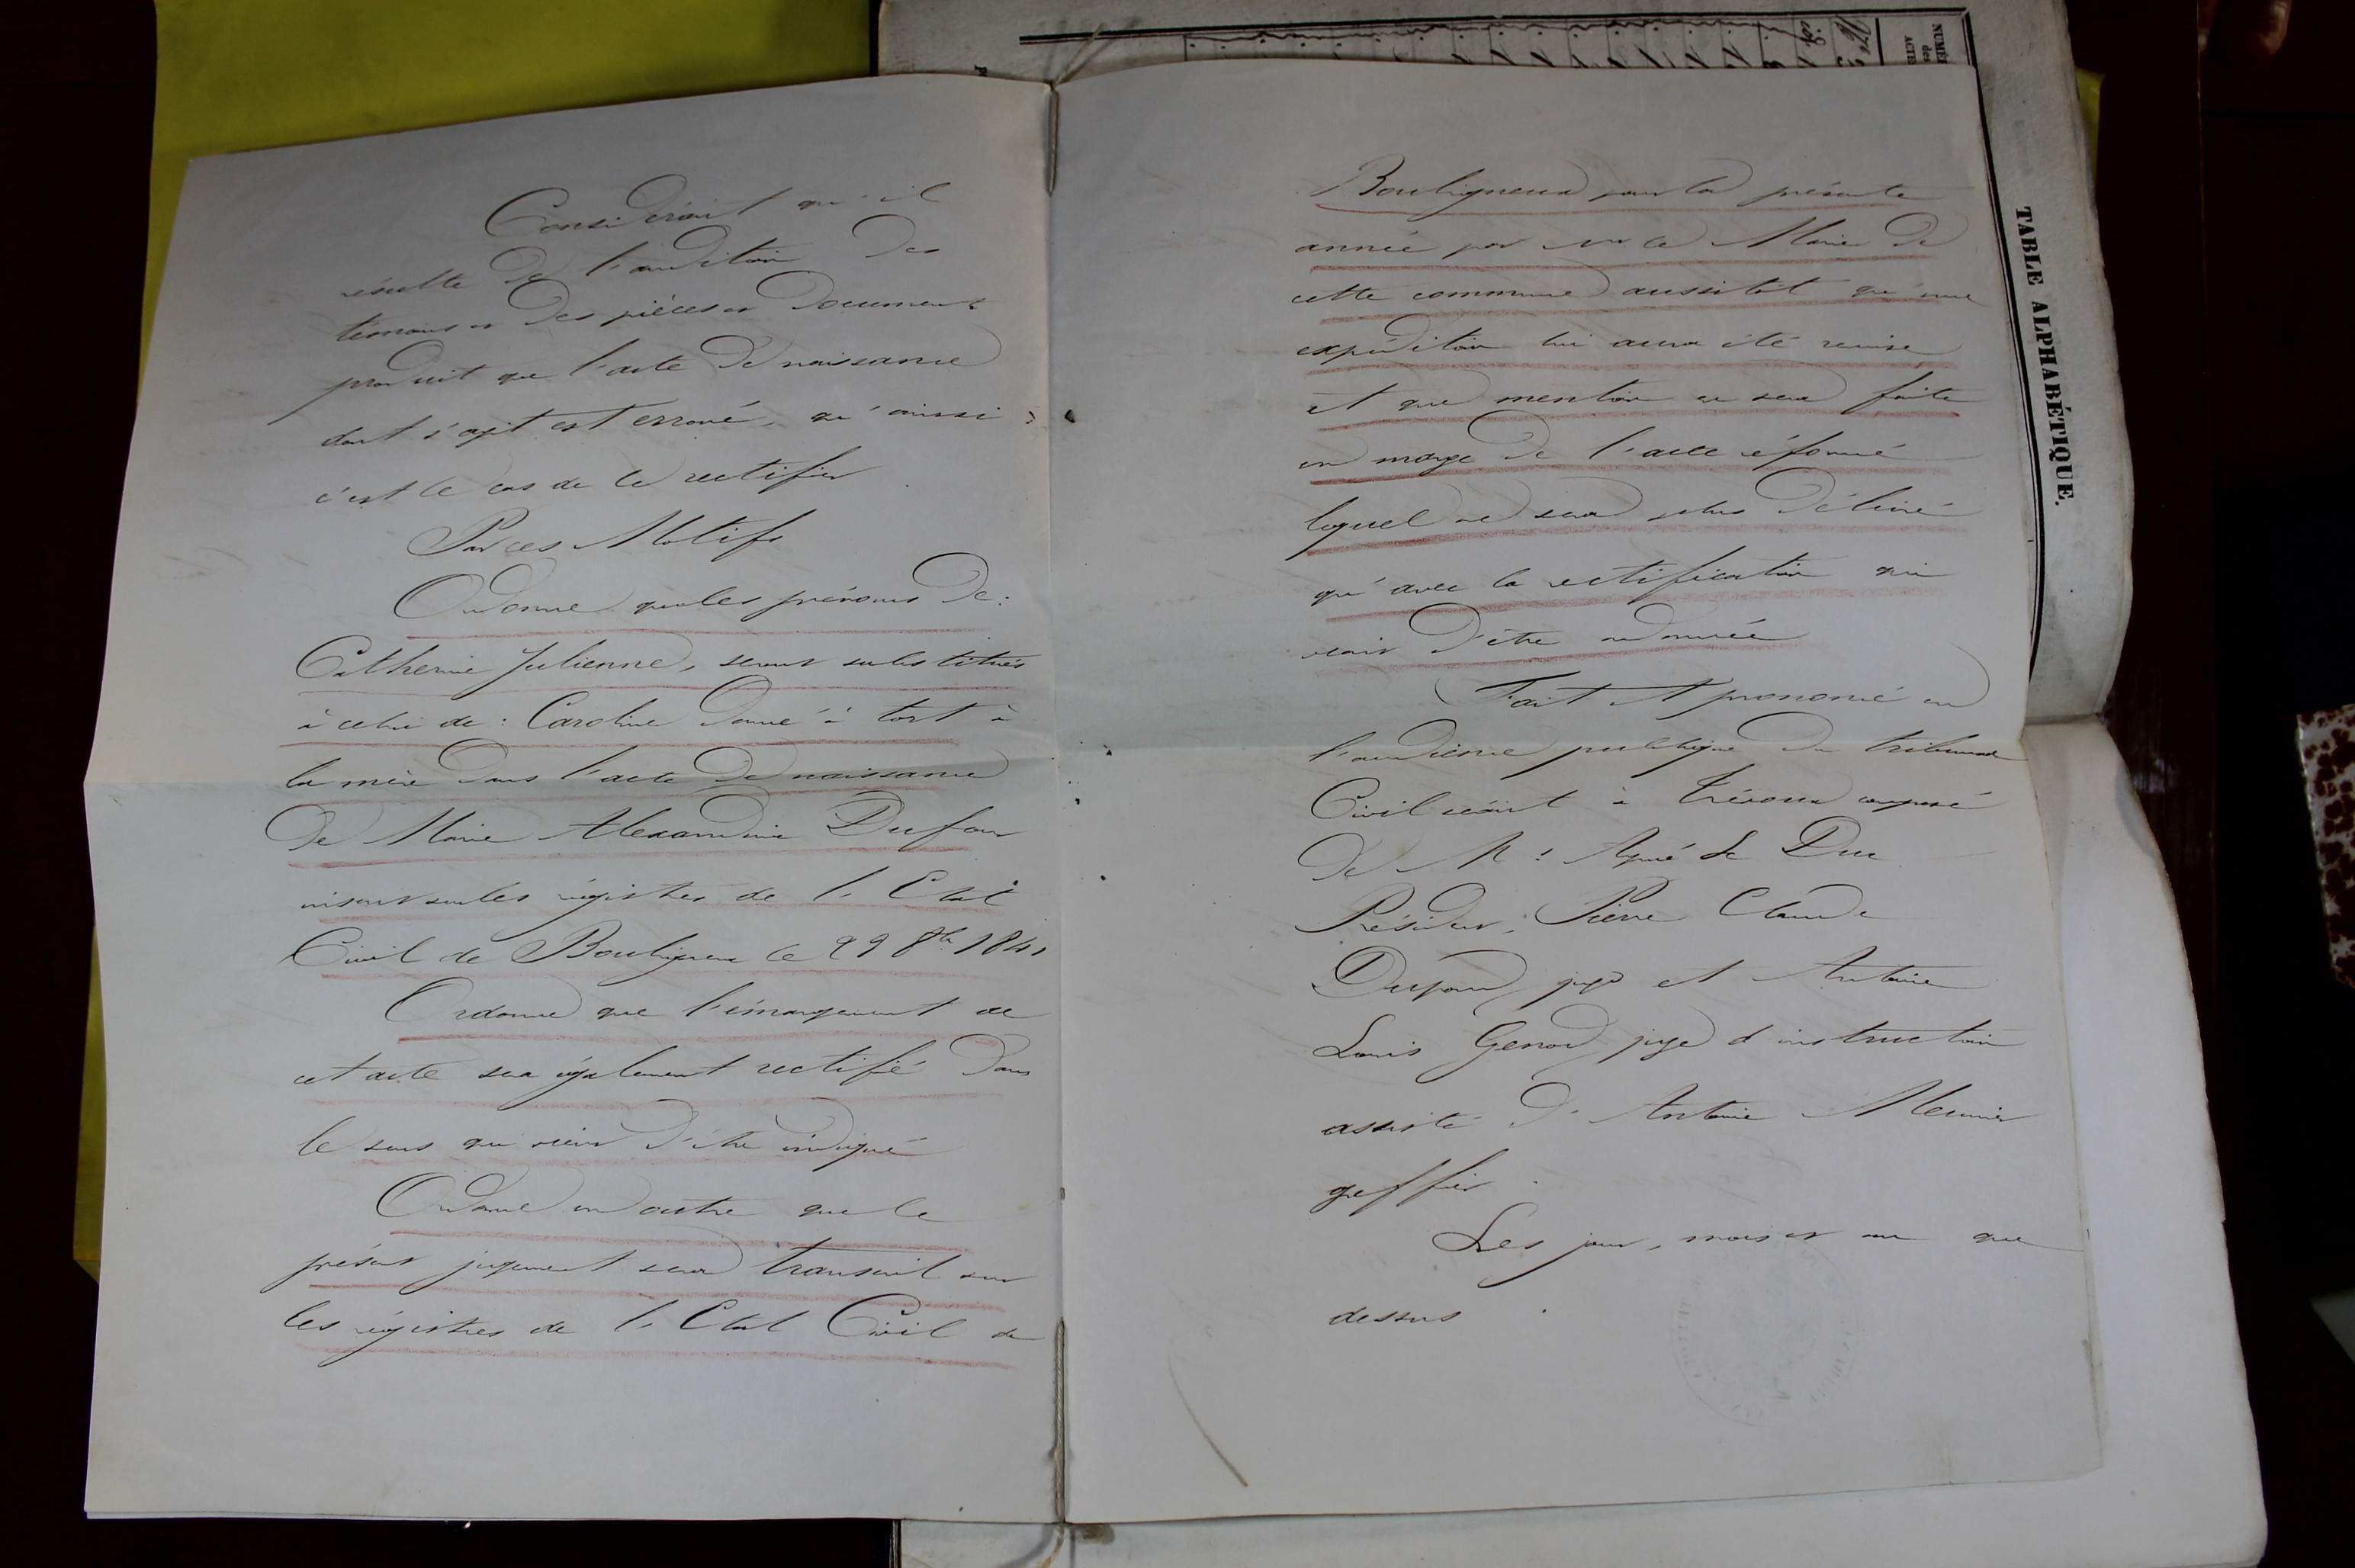 Considérant qu'il
résulte de l'audition des
témoins et des pièces et documents
produit que l'acte de naissance
dont s'agit est erroné, qu'ainsi
c'est le cas de le rectifier
Par ces Motifs
Ordonne que les prénoms de :
Catherine Julienne, seront substitués
à celui de : Caroline donné à tort à
la mère dans l'acte de naissance
de Marie Alexandrine Dufour
inscrit sur les régistres de l'Etat
Civil de Bouligneux le 29 8bre 1841
Ordonne que l'émargement de
cet acte sera également rectifié dans
le sens qui vient d'être indiqué
Ordonne en outre que le
présent jugement sera transcrit sur
les régistres de l'Etat Civil de
Bouligneux pour la présente
année par Mr le Maire de
cette commune aussitôt qu'une
expédition lui aura été remise
et que mention en sera faite
en marge de l'acte réformé
lequel ne sera plus délivré
qu'avec la rectification qui
vient d'être ordonnée
Fait et prononcé en
l'audience publique du tribunal
Civil séant à Trévoux composé
de M: Le Duc
Président, Pierre Claude
juge et Antoine
Louis Genod juge d'instruction
assisté d'Antoine Meunier
greffier
Les jour, mois et an que
dessus
TABLE ALPHABÉTIQUE.
NUMÉ
des
ACTE